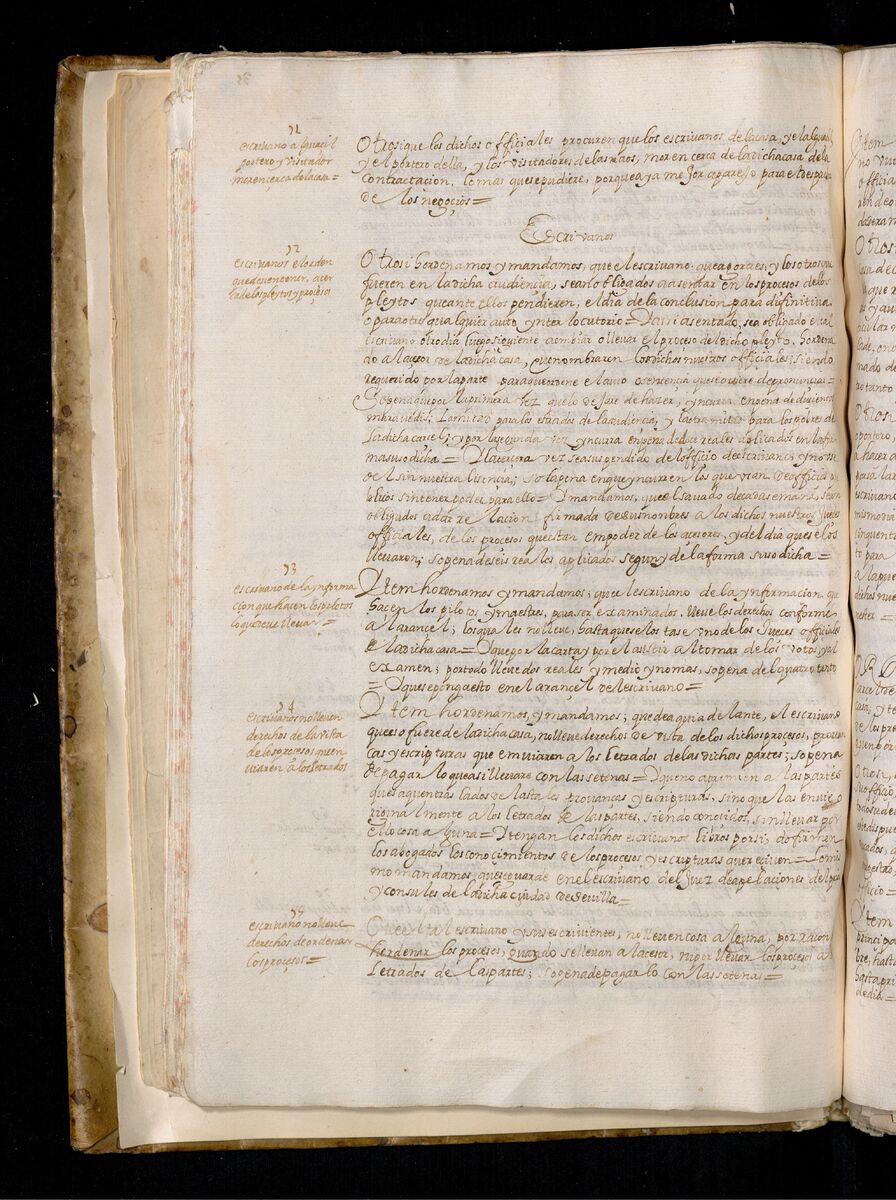 51
escrivano alguacil
portero y visitador
moren cerca de la casa =
Otrosi que los dichos officiales procuren que los escrivanos de la casa, y el alguacil
y el portero della, y los visitadores de las naos, moren cerca de la dicha casa de la
contractacion, lo mas que se pudiere, porque aya mejor aparejo para el despacho
de los negocios =
Escrivanos
52
escrivanos el orden
que deven tener, acer
ca de los pleytos y proçesos
Otrosi hordenamos y mandamos, que el escrivano que aora es, y los otros que
fueren en la dicha audiencia, sean obligados a asentar en los procesos de los
pleytos que ante ellos pendieren, el dia de la conclusion para difinitiva
o para otro qualquier auto ynterlocutorio = Y assi asentado, sea obligado el tal
escrivano otro dia luego siguiente a embiar o llevar el proceso del dicho pleyto, hordena
do al acesor de la dicha casa, que nombraren los dichos nuestros officiales; siendo
requerido por la parte para que ordene el auto o sentencia que se quiere de pronunciar =
So pena que por la primera vez que lo dejare de hazer, yncurra en pena de duzientos
maravedis; la mitad para los estrados de la audiencia, y la otra mitad para los pobres de
la dicha carcel; y por la segunda vez yncurra en pena de doze reales aplicados en la for
ma suso dicha = Y la tercera vez sea suspendido del officio de escrivano, y no use
del sin nuestra licencia; so la pena en que yncurren los que usan de officios pu
blicos sin tener poder para ello = Y mandamos, que el savado de cada semana, sean
obligados a dar relacion firmada de sus nombres a los dichos nuestros Jueces
officiales, de los procesos que estan em poder de los acesores, y del dia que ellos
llevaron; so pena de seis reales aplicados segun y de la forma suso dicha =
53
escrivano de la ynforma
cion que hacen los pilotos
lo que deve llevar =
Ytem hordenamos y mandamos, que el escrivano de la ynformacion que
hacen los pilotos y maestres, para ser examinados, lleve los derechos conforme
al arancel; los quales no lleve, hasta que se los tase uno de los Jueces officiales
de la dicha casa = Y que por la carta y por el assistir al tomar de los votos, y al
examen; por todo lleve dos reales y medio y no mas, so pena del quatro tanto
= Y que se ponga esto en el arançel del escrivano =
54
escrivanos no lleven
derechos de la vista
de los procesos que en
viaren a los letrados
Ytem hordenamos, y mandamos; que de aqui adelante, el escrivano
que es o fuere de la dicha casa, no lleve derechos de vista de los dichos procesos, provan
cas y escripturas que emviaren a los letrados de las dichas partes; so pena
de pagar lo que asi llevare con las setenas = Y que no apremien a las partes
que saquen traslados de las tales provanças y escripturas, sino que las envie o
riginalmente a los letrados de las partes, siendo conoçidos, sin llevar por
ello cosa alguna = Y tengan los dichos escrivanos libros por si; do firmen
los abogados los conoçimientos de los proçesos y escripturas que reciven = Lo mis
mo mandamos, que se guarde en el escrivano del Juez de apelaciones del prior
y consules de la dicha ciudad de Sevilla =
55
escrivano no lleve
derechos de ordenar
los proçesos =
Que el tal escrivano y sus escrivientes, no lleven cosa alguna, por raçon
hordenar los procesos, quando se llevan al acesor, ni por llevar los proçesos a los
letrados de las partes; so pena de pagarlo con las setenas =